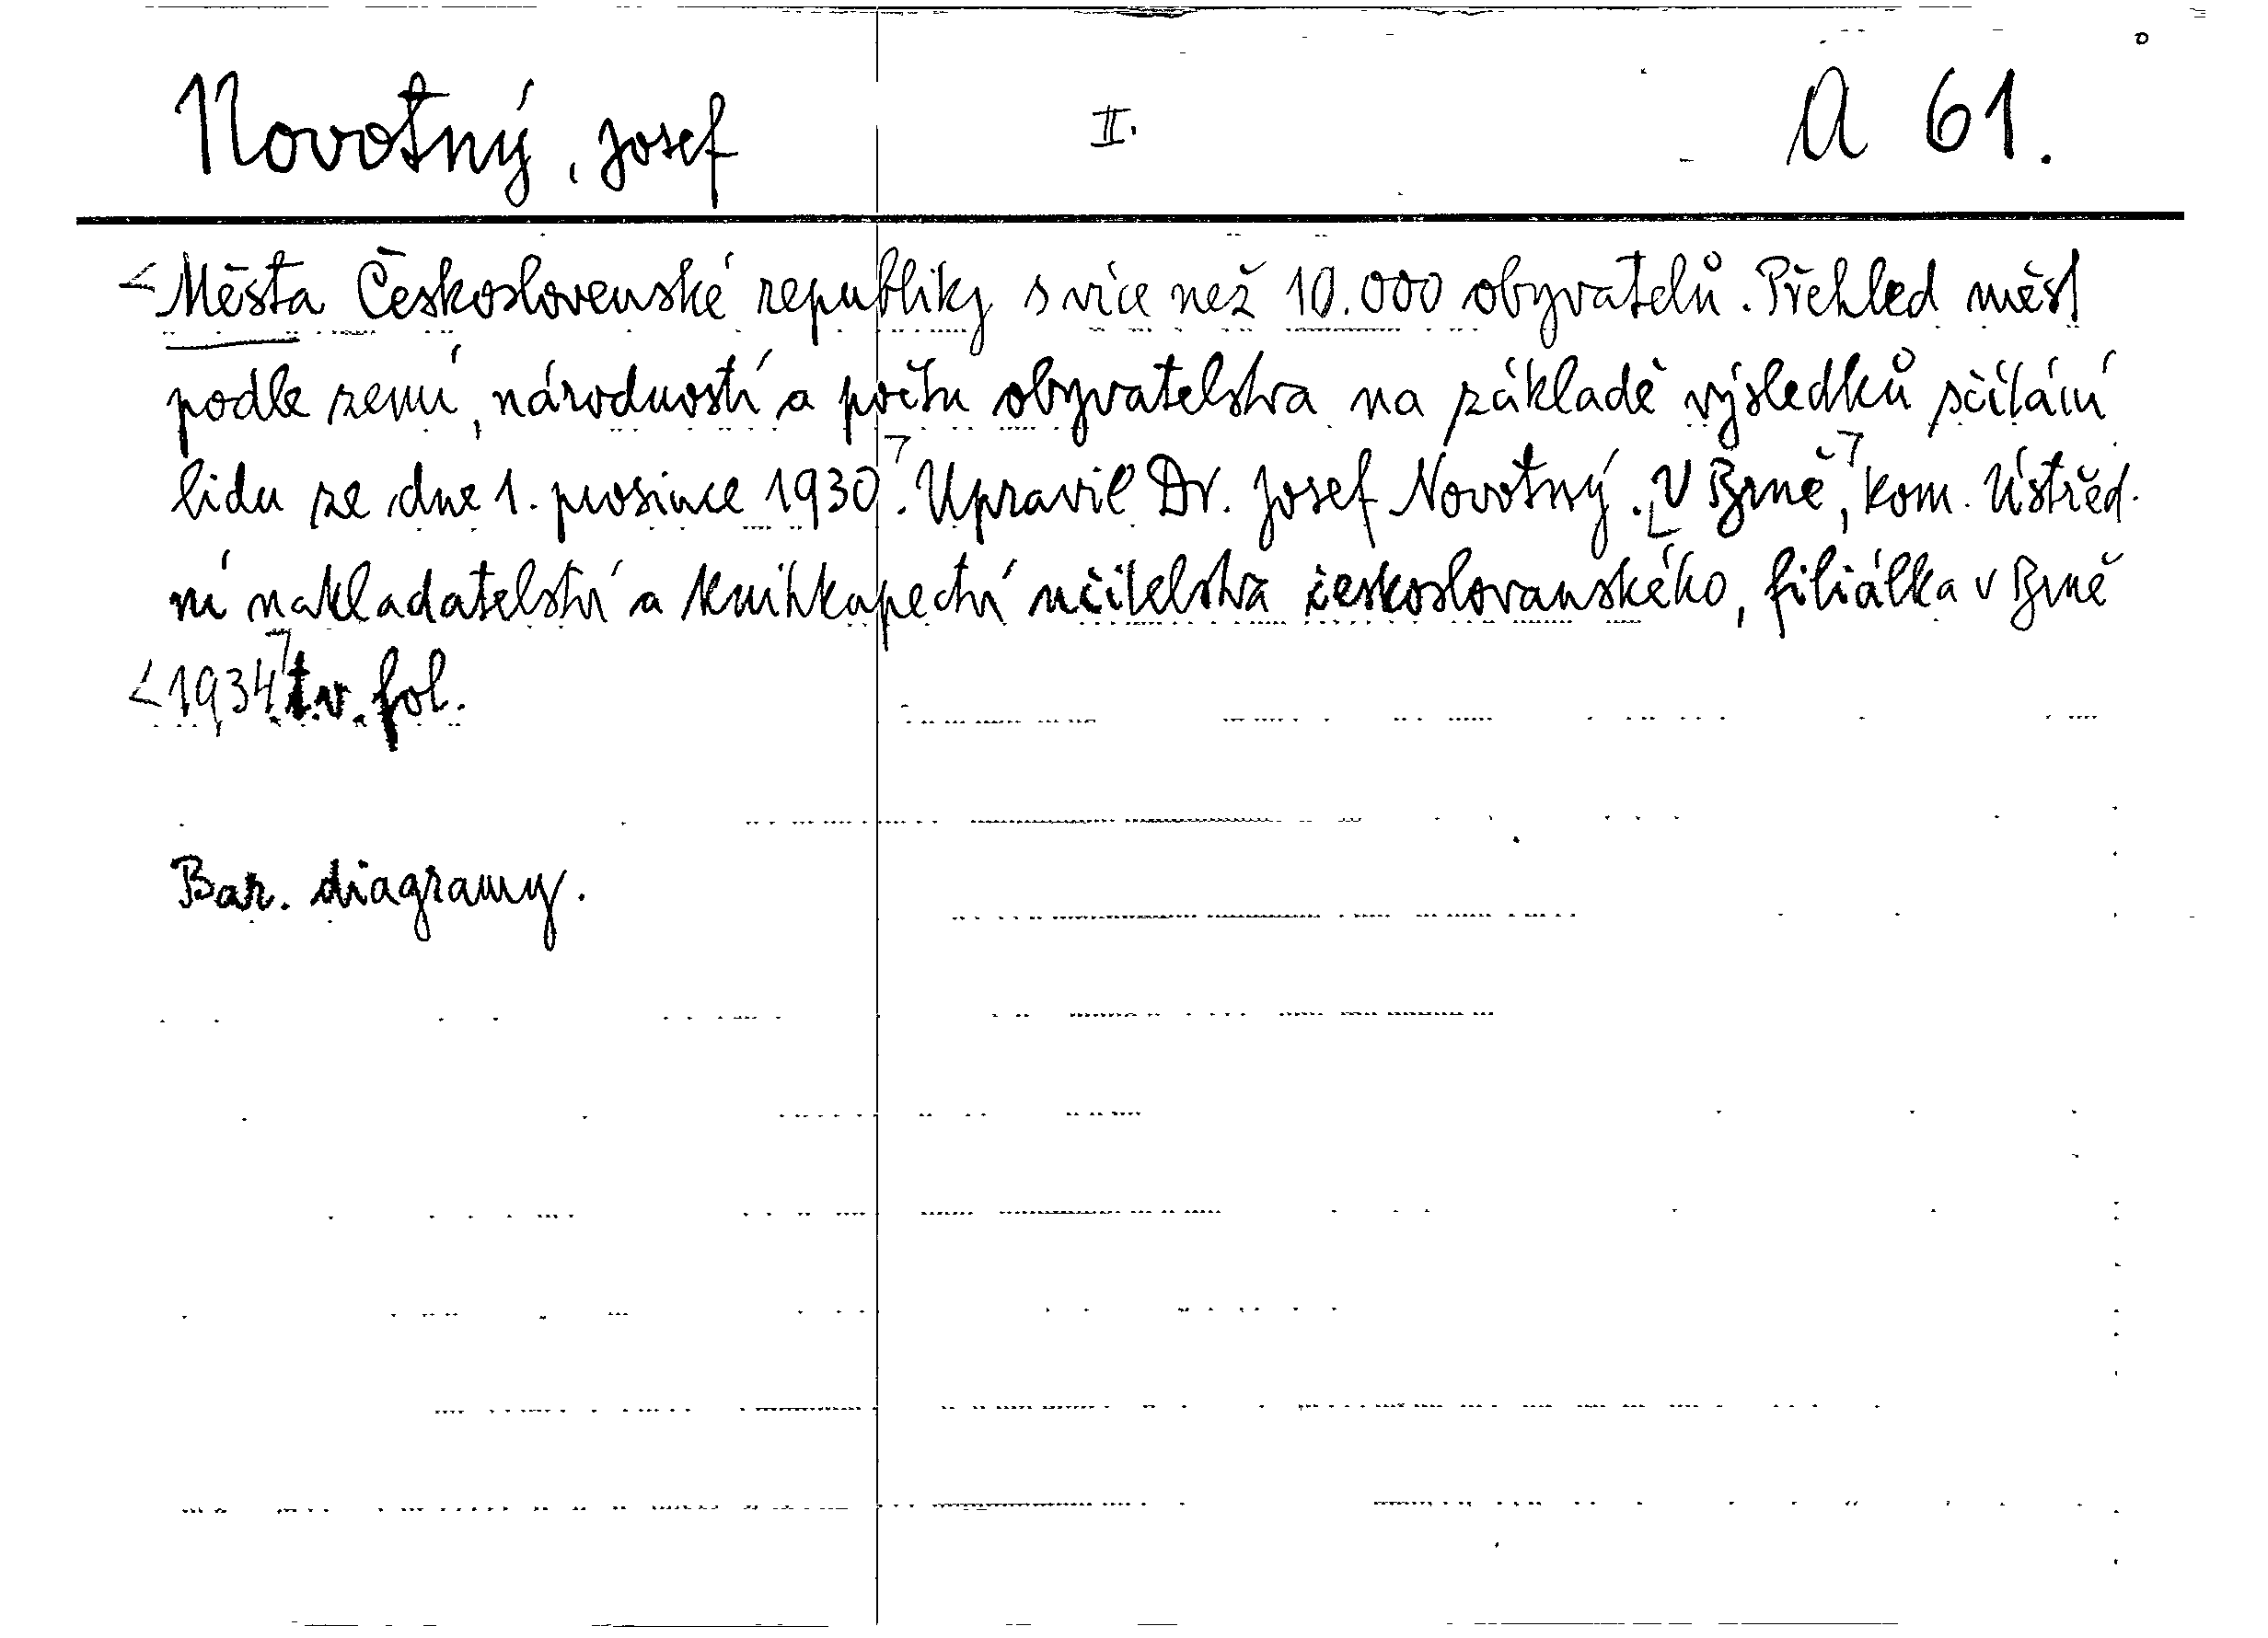 Novotný, Josef II. A 61.
<Města Československé republiky s více než 10.000 obyvatelů. Přehled měst
podle zemí, národností a počtu obyvatelstva na základě výsledků sčítání
lidu ze dne 1. prosince 1930⁊. Upravil Dr. Josef Novotný. [V Brně⁊, kom. Ústřed-
ní nakladatelství a knihkupectví učitelstva českoslovanského, filiálka v Brně
<1934⁊ t.v. fol.
Bar. diagramy.